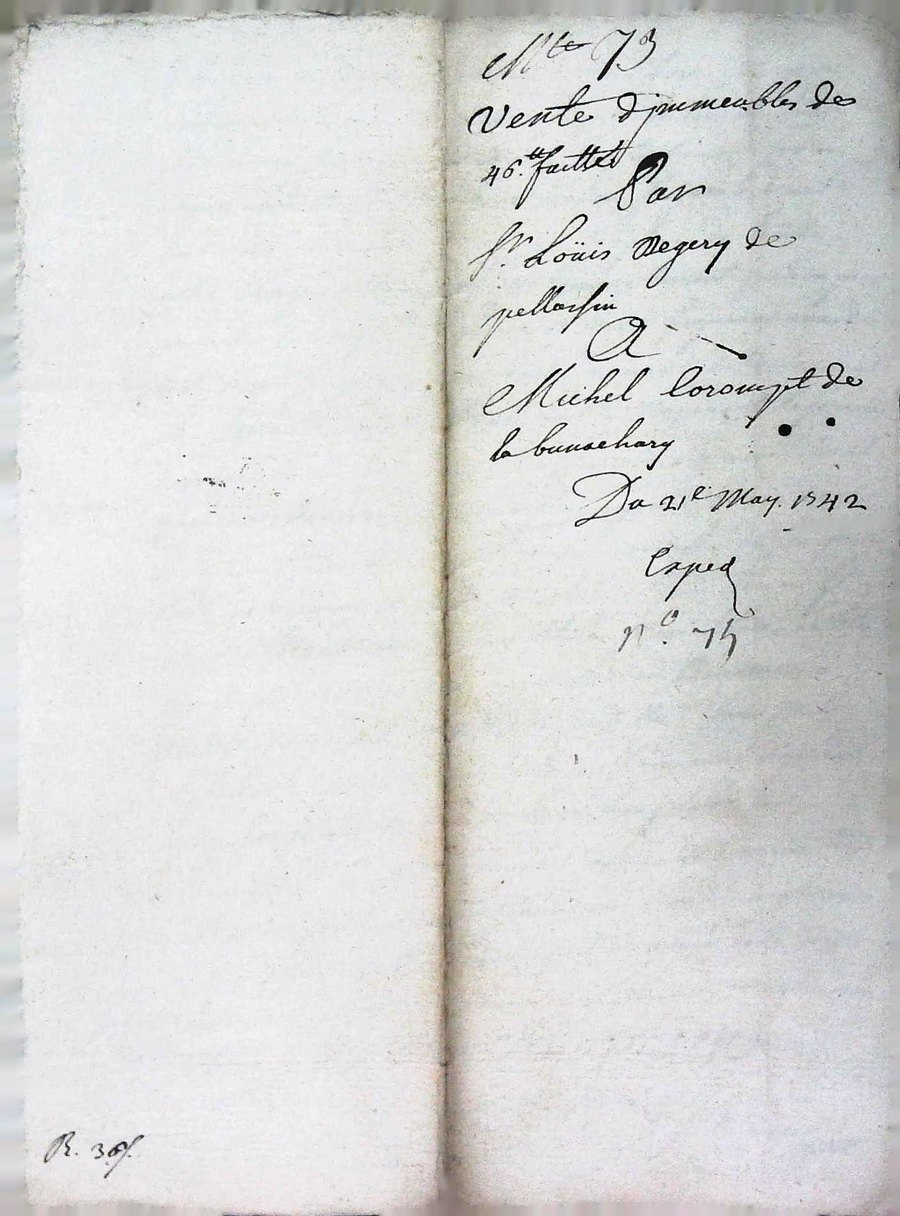 Mte 73
Vente d'immeubles de
46.tt faitte
Par
Sr. Loüis Regery de
pellossin
A
Michel Corompt de
la bunachary
Du 21e May. 1742
Exped
n.o 75
R. 36s.